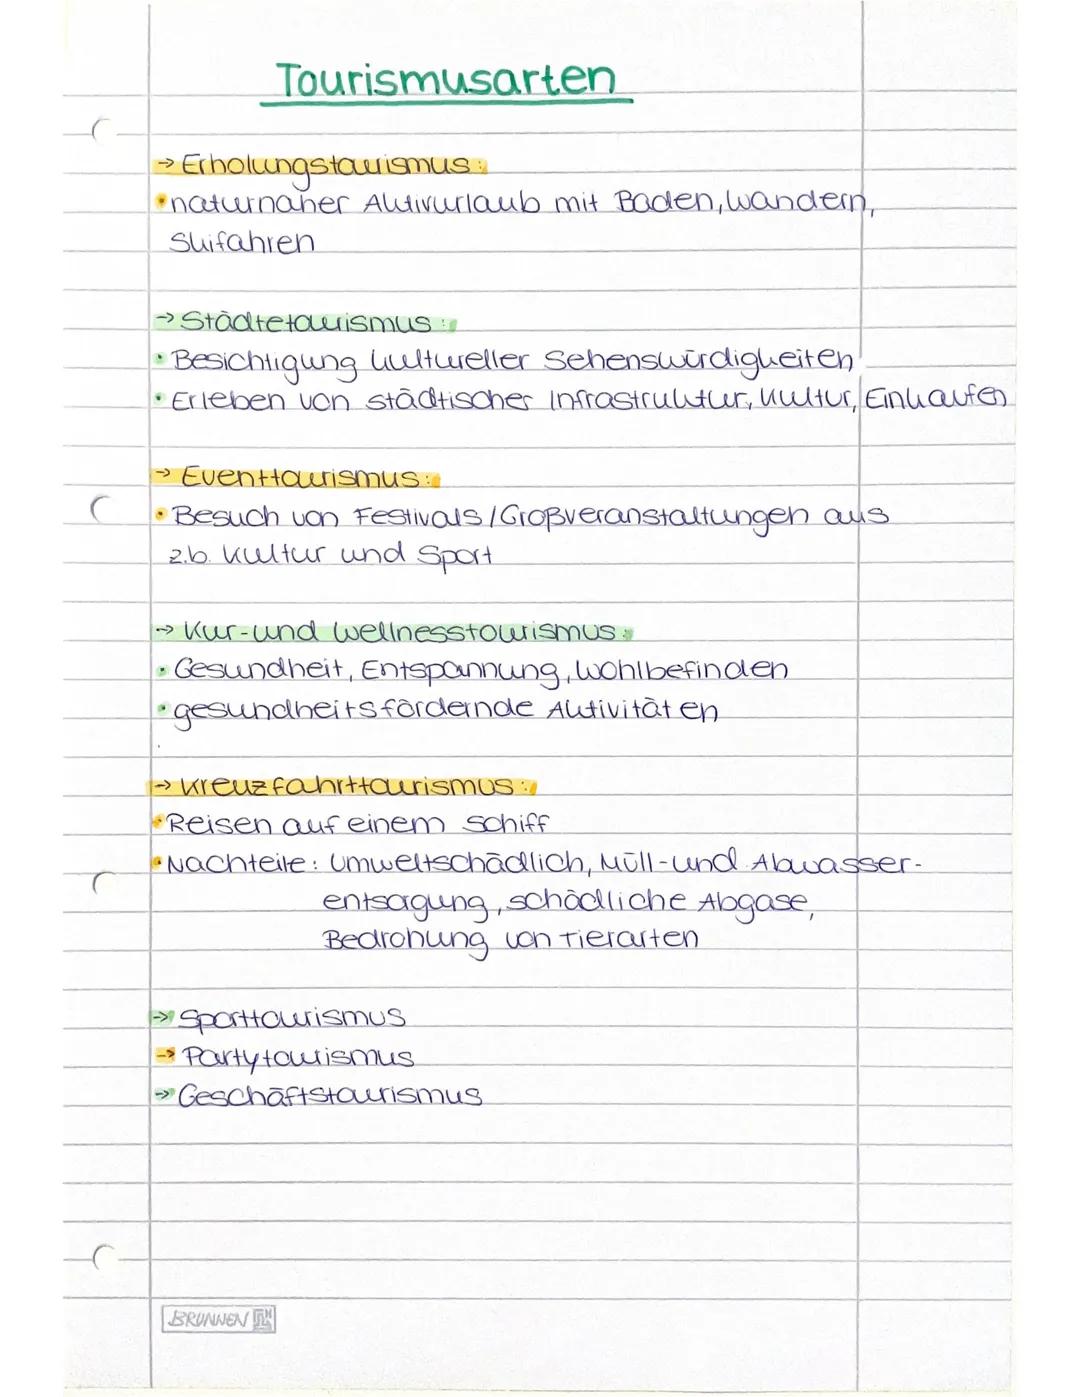 Tourismusarten
→ Erholungstourismus:
• naturnaher Aktivurlaub mit Baden, Wandern,
Skifahren
→ Städtetourismus:
• Besichtigung kultureller Sehenswürdigkeiten
• Erleben von städtischer Infrastruktur, Kultur, Einkaufen
→ Eventtourismus:
• Besuch von Festivals / Großveranstaltungen aus
z.b. Kultur und Sport
→ Kur- und Wellnesstourismus:
• Gesundheit, Entspannung, Wohlbefinden
• gesundheitsfördernde Aktivitäten
→ Kreuzfahrttourismus:
• Reisen auf einem Schiff
• Nachteile: Umweltschädlich, Müll- und Abwasser-
entsagung, schädliche Abgase,
Bedrohung von Tierarten
→ Sporttourismus
→ Partytourismus
→ Geschäftstourismus
BRUNNEN